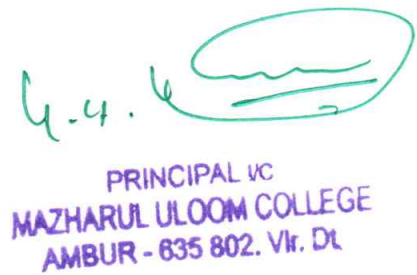 PRINCIPAL I/C
MAZHARUL ULOOM COLLEGE
AMBUR - 635 802. Vlr. Dt.